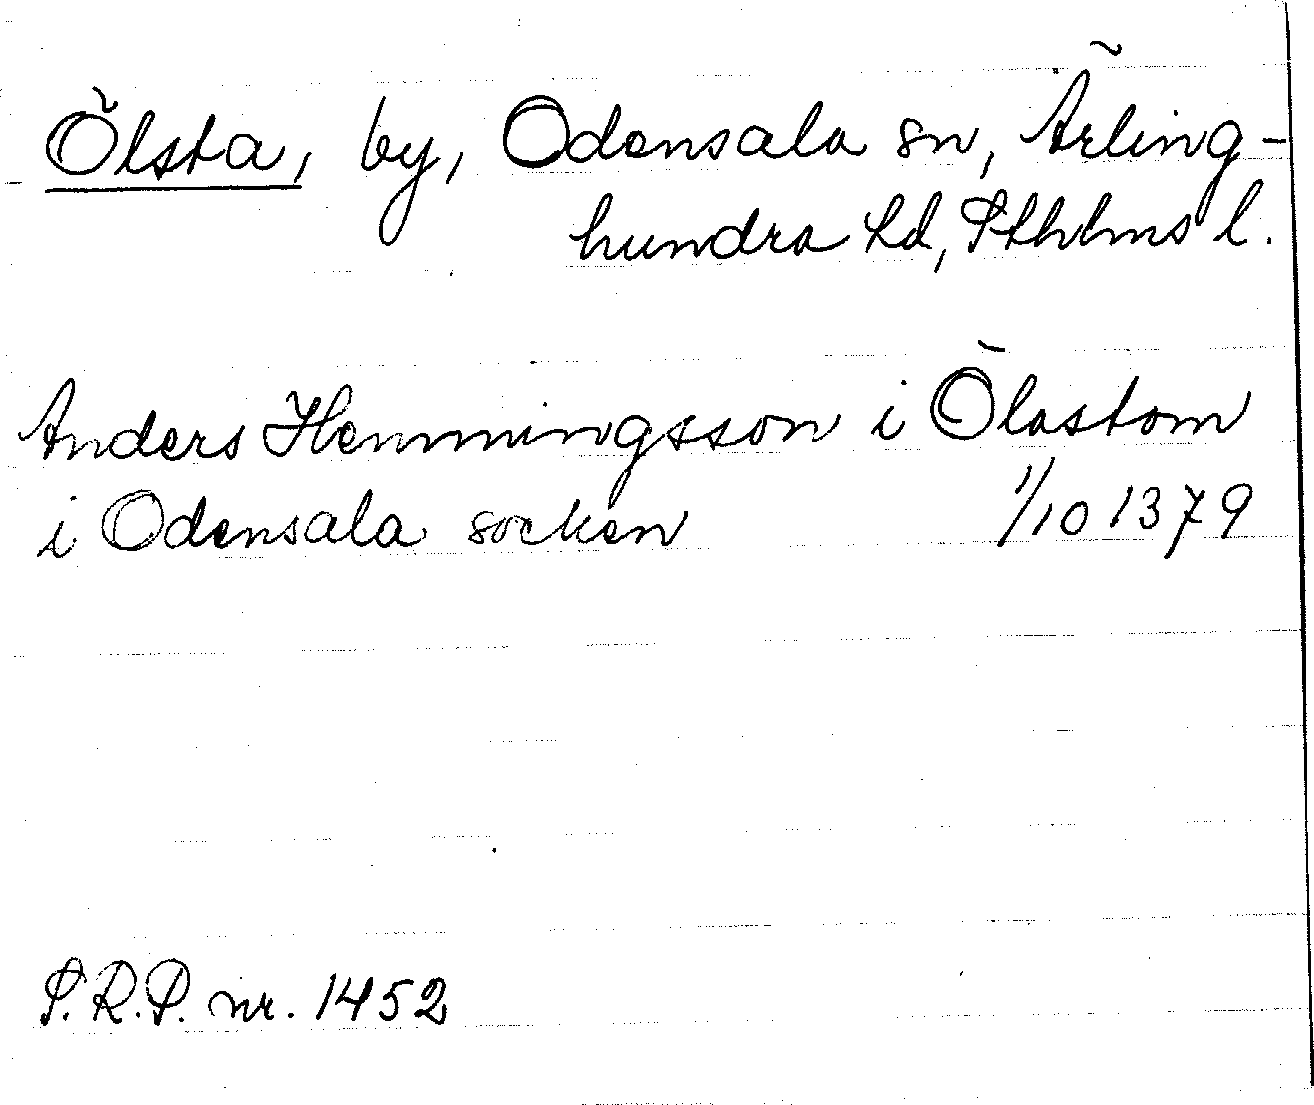 Ölsta, by, Odensala sn, Ärling-
hundra hd, Sthlms l.
Anders Hemmingsson i Ölastom
i Odensala socken 1/10 1379
S.R.P. nr. 1452